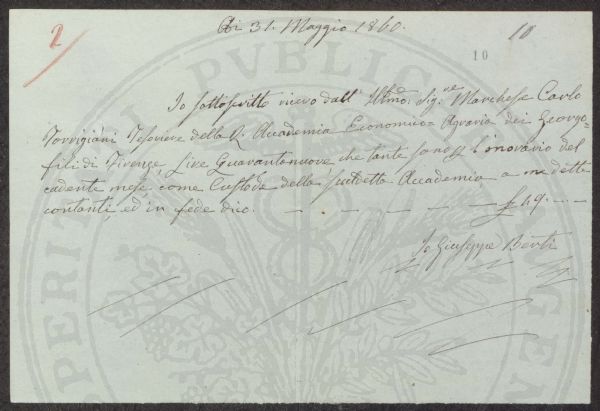 2
Di 31. Maggio 1860.
10
10
Io sottoscritto ricevo dall' Illmo. Sig.re Marchese Carlo
Torrigiani Tesoriere della R. Accademia Economico-Agraria dei Georgo=
fili di Firenze, Lire Quarantanuove che tante sono p l'onorario del
cadente mese, come Custode della suddetta Accademia a me dette
contanti, ed in fede dico. — — — — — — £ 49. — —
Io Giuseppe Berti
PERITA
PUBLIC